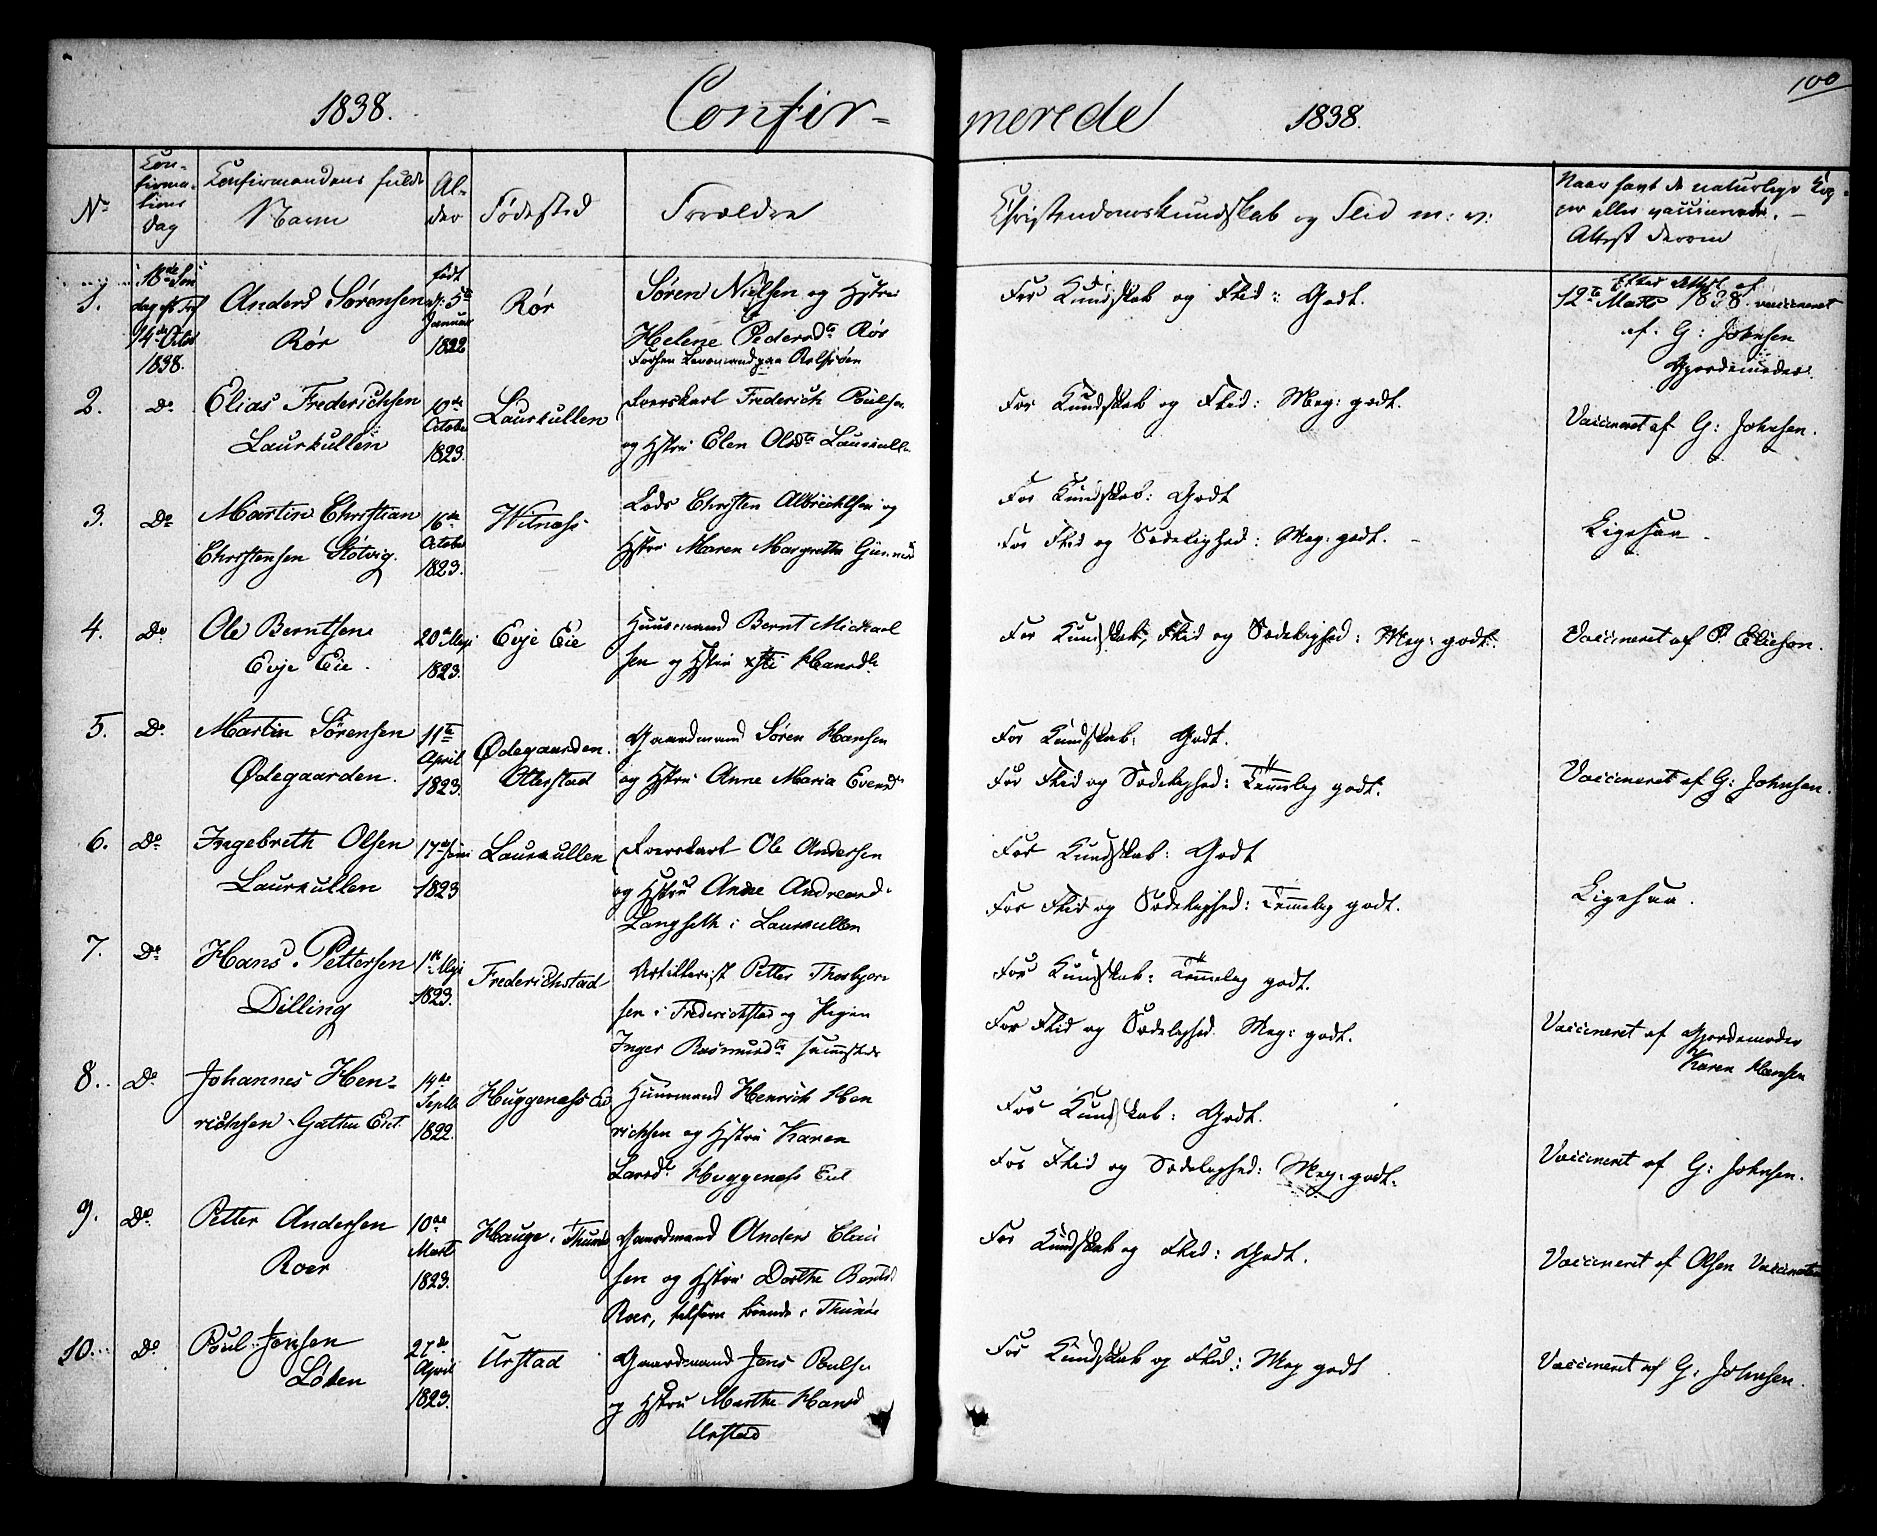 100
1838. Confir- merede 1838.
No
Con-
firma-
tions
dag
Confirmandens fulde
Navn
Al-
der
Fødested
Forældre
Christendomskundskab og Flid m: v:
Naar havt de naturlige Kop-
per eller vaccineret. —
Attest derom
1.
18de Søn
dag eft Trf
14de Octbr
1838.
Anders Sørensen
Rør
født
d: 5te
Januar
1822
Rør
Søren Nielsen og Hstru
Helene Pedersdtr Rør
For Kundskab og Flid: Godt.
Efter Attest af
12te Marts 1838. vaccineret
af: G: Johnsen
Gjordemoder.
2.
Do
Elias Frederichsen
Laurkullen
10de
October
1823.
Laurkullen
Frederich Poulsen
og Hstru Elen Olsdtr Laurkulle
For Kundskab og Flid: Meg: godt.
Vaccineret af G: Johnsen.
3.
Do
Martin Christian
Christensen Støtvig.
16de
October
1823.
Witnæss
Lods Christen Albrechtsen og
Hstru Maren Margrethe
For Kundskab: Godt
For Flid og Sædelighed: Meg: godt. -
Ligesaa -
4.
Do
Ole Berntsen
Evje Eie.
20de Maji
1823.
Evje Eie
Huusmand Bernt Mickael
sen og Hstru Hansdtr
For Kundskab, Flid og Sædelighed: Meg: godt:
Vaccineret af P. Eliesen.
5.
Do
Martin Sørensen
Ødegaarden.
11te
April
1823.
Ødegaarden.
Otterstad
Gaardmand Søren Hansen
og Hstru Anne Maria Evensd
For Kundskab: Godt.
For Flid og Sædelighed: Temmelig godt.
Vaccineret af G: Johnsen.
6.
Do
Ingebreth Olsen
Laurkullen
17de Juni
1823
Laurkullen
Ole Andersen
og Hstru Anne Andreasd
Langseth i Laurkullen
For Kundskab: Godt
For Flid og Sædelighed: Temmelig godt.
Ligesaa.
7.
Do
Hans Pettersen
Dilling
1ste Maji
1823.
Frederichstad
Artillerist Petter Thorbjørn
sen i Frederichstad og Pigen
Inger Rasmusdtr sammesteds
For Kundskab: Temmelig godt.
For Flid og Sædelighed. Meg: godt.
Vaccineret af Gjordemoder
Karen Hansen
8.
Do
Johannes Hen-
richsen Eiet.
14de
Septbr
1822.
Huggenæss Eie
Huusmand Henrich Hen
richsen og Hstru Karen
Larsdtr Huggenæss Eiet
For Kundskab: Godt.
For Flid og Sædelighed: Meg: godt.
Vaccineret af G: Johnsen.
9.
Do
Petter Andersen
Roer
10de
Marts
1823.
Hauge i Thunøe
Gaardmand Anders Clau
sen og Hstru Dorthe
Roer, Thunøe
For Kundskab og Flid: Godt.
Vaccineret af Olsen Vaccinateur
10.
Do
Poul Jensen
Løken
27de
April
1823.
Urstad
Gaardmand Jens Poulse
og Hstru Marthe Hansd
Urstad
For Kundskab og Flid.: Meg godt
Vaccineret af G. Johnsen.